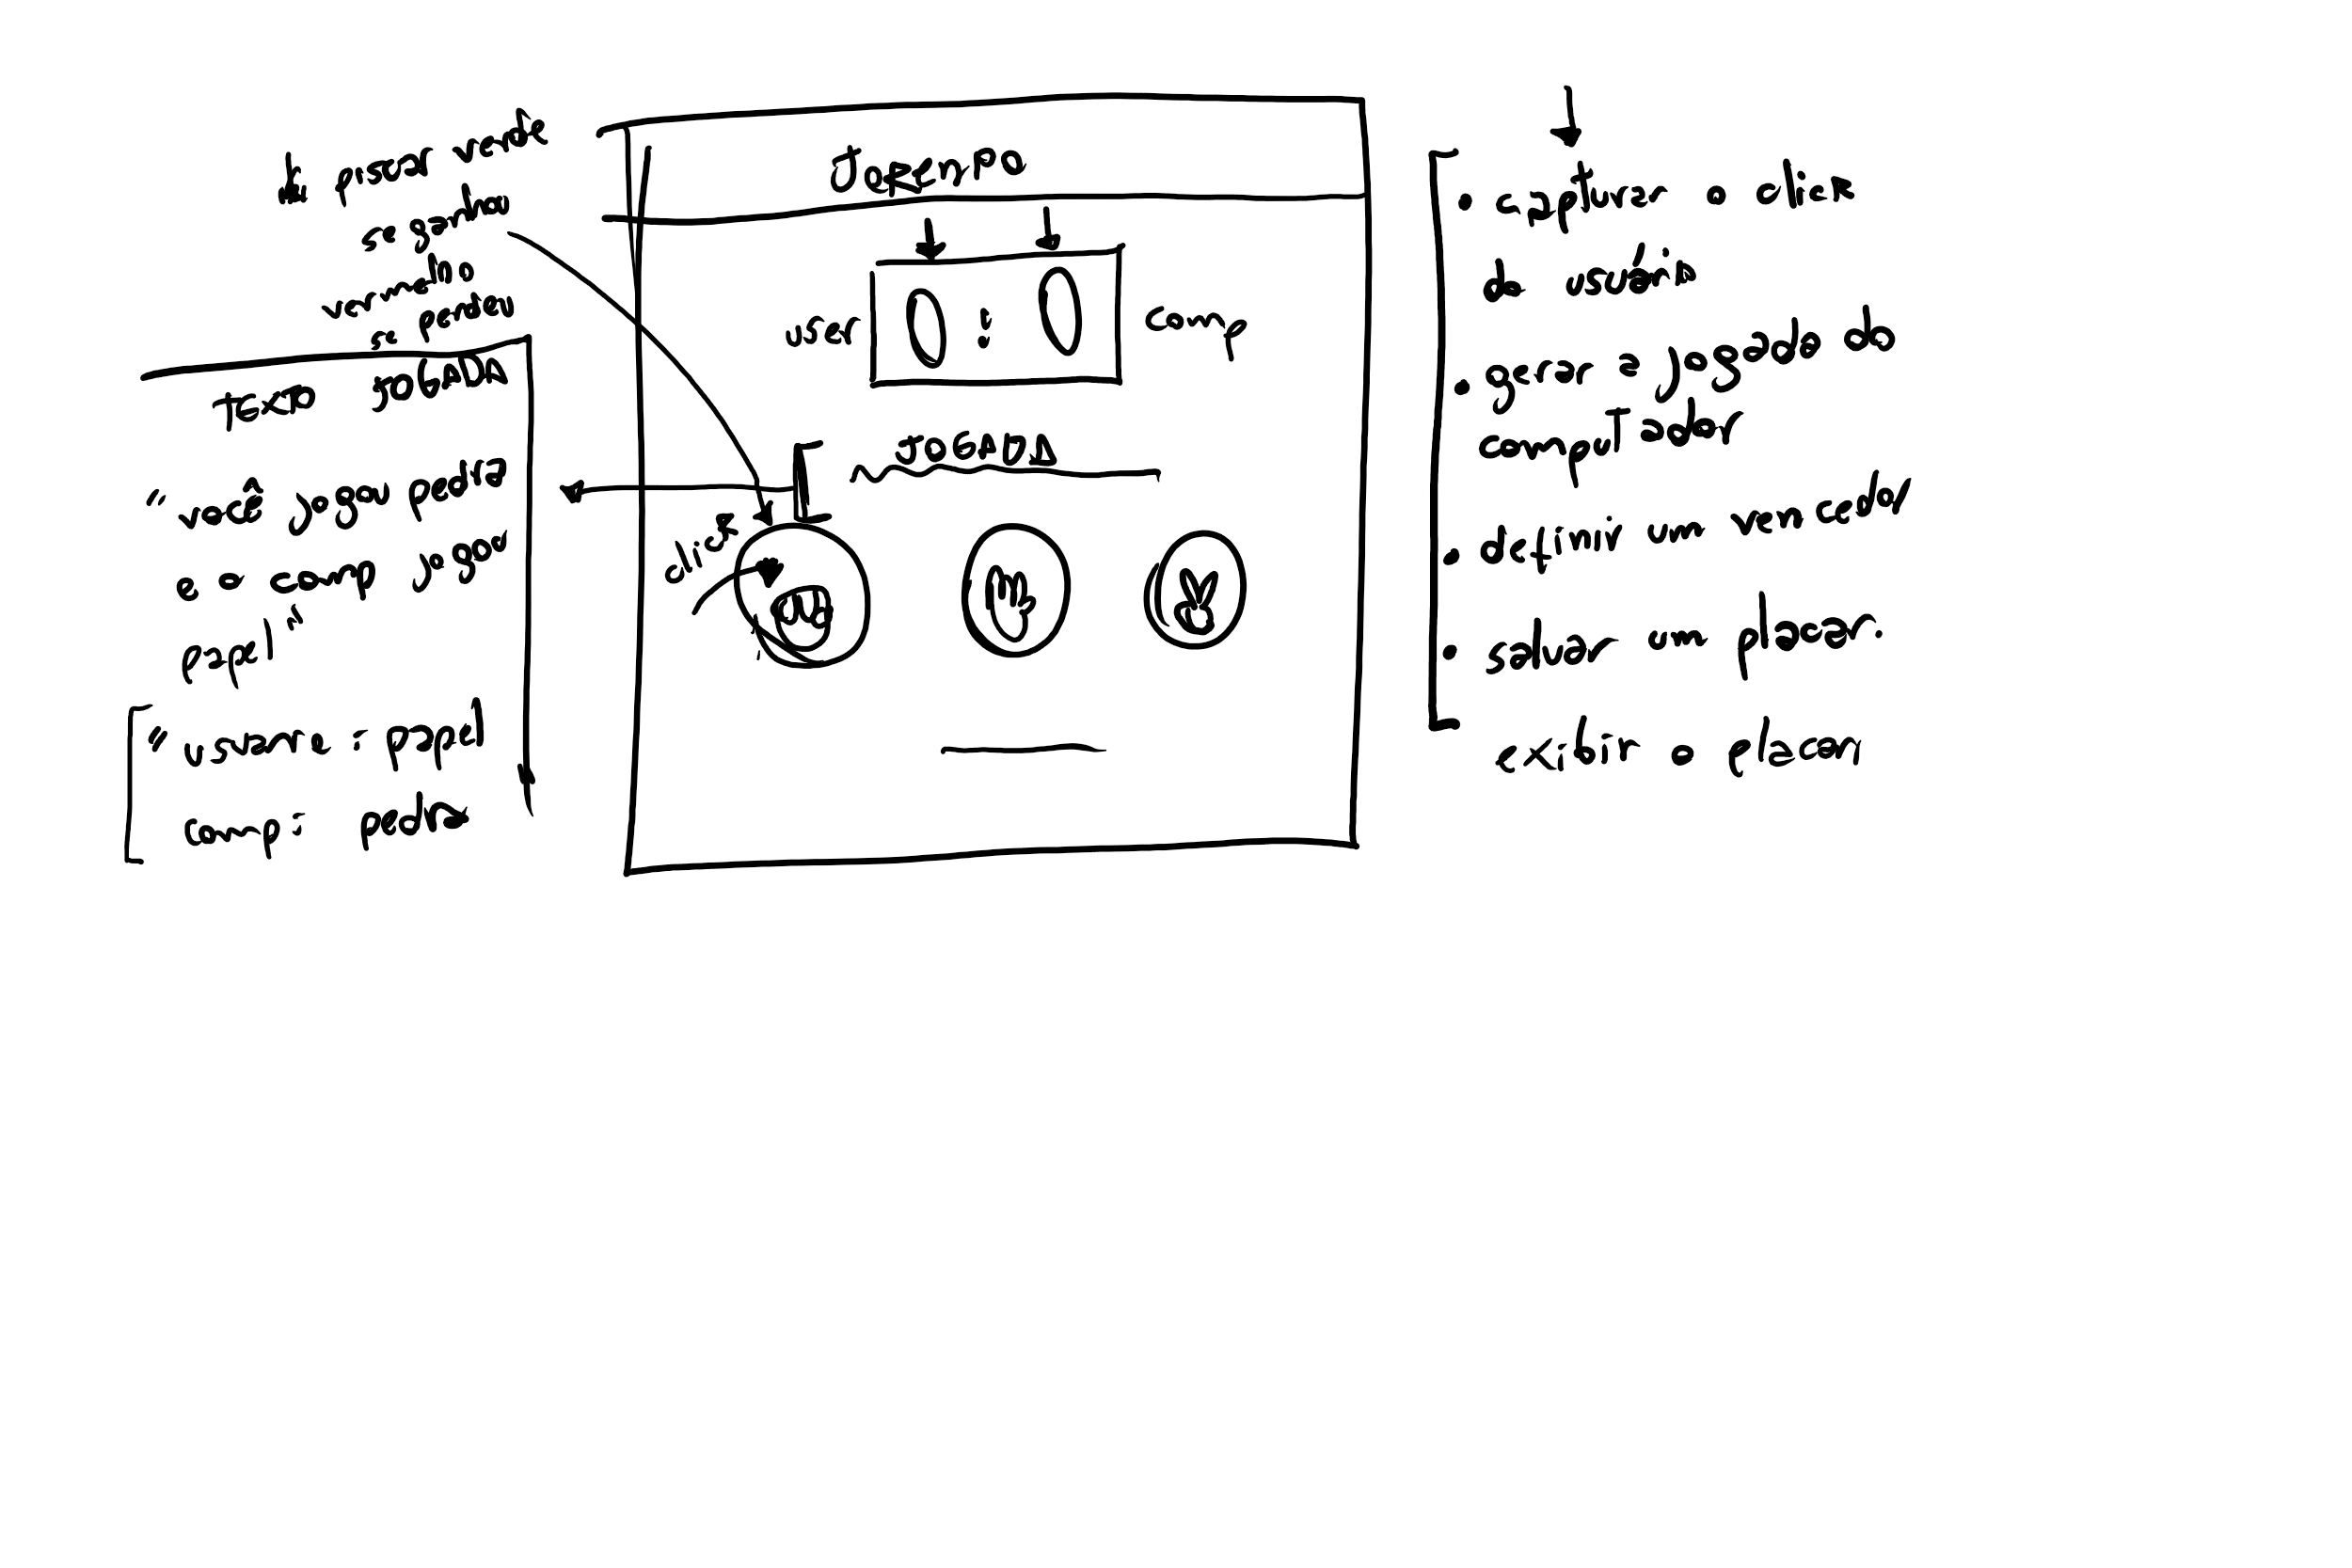 piscar verde
se ganhou
vermelho
se perdeu
Texto JOGADA
"você jogou pedra
e o comp jogou
papel"
" usuario : papel
comp : pedra
JOKENPO
user 0 : 0 comp
JOGADA
click
• capturar o click
do usuário
• gerar a jogada do
computador
• definir um vencedor
• salvar um placar.
exibir o placar